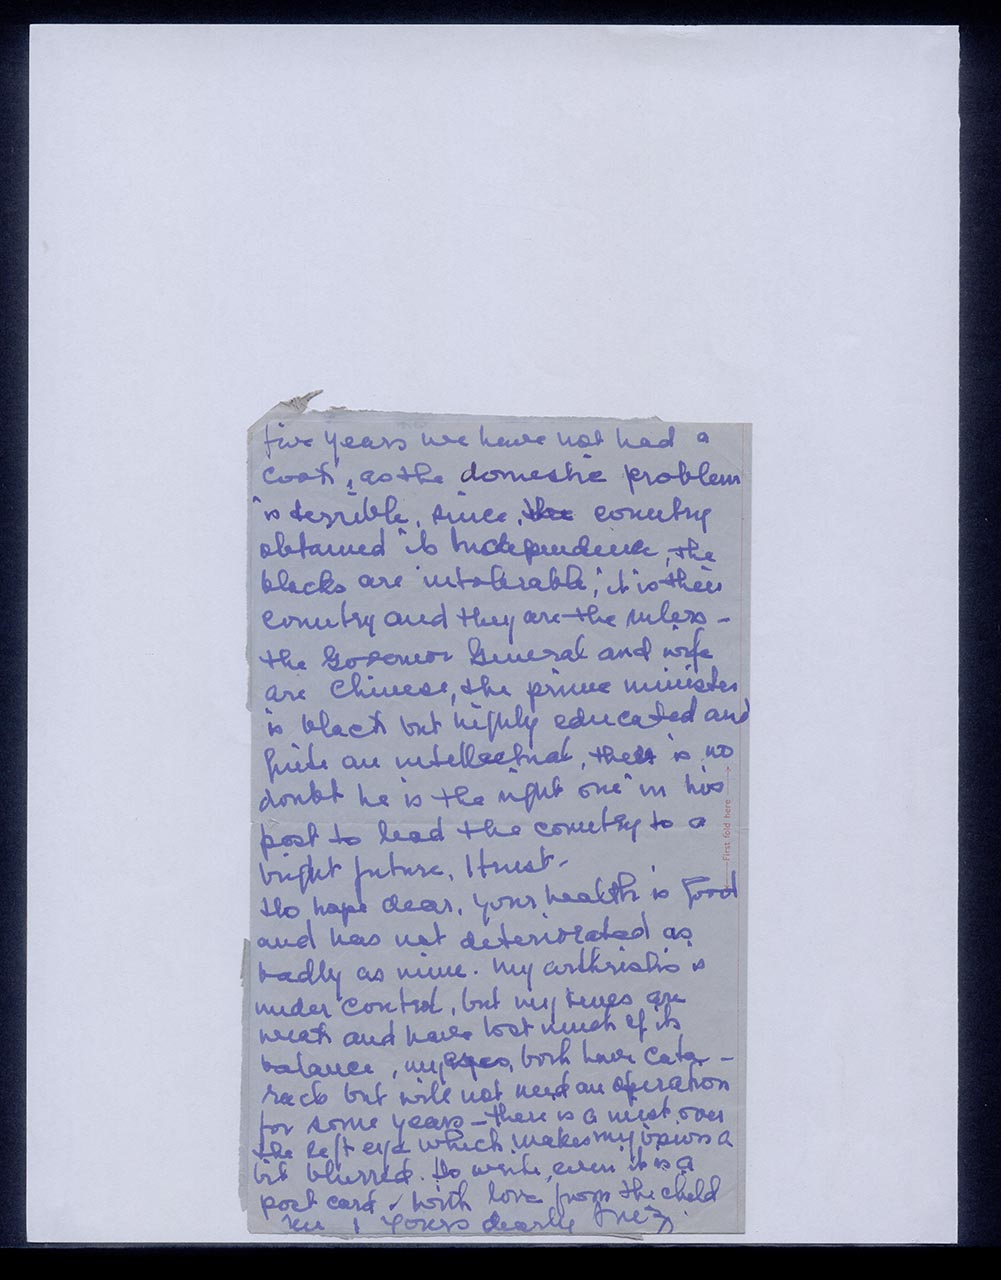 five years we have not had a
cook, as the domestic problem
is terrible, since, the country
obtained its Independence, the
blacks are intolerable, it is their
country and they are the rulers –
the Governor General and wife
are Chinese, the prime minister
is black but highly educated and
quite an intellectual, there is no
doubt he is the right one in his
post to lead the country to a
bright future, I trust –
Do hope dear, your health is good
and has not deteriorated as
badly as mine. My arthristis is
under control, but my knees are
weak and have lost much of its
balance, my eyes, both have cata –
racts but will not need an operation
for some years – there is a mist over
the left eye which makes my vision a
bit blurred. Do write, even it is a
post card – with love from the child
 Yours dearly Inez.
First fold here